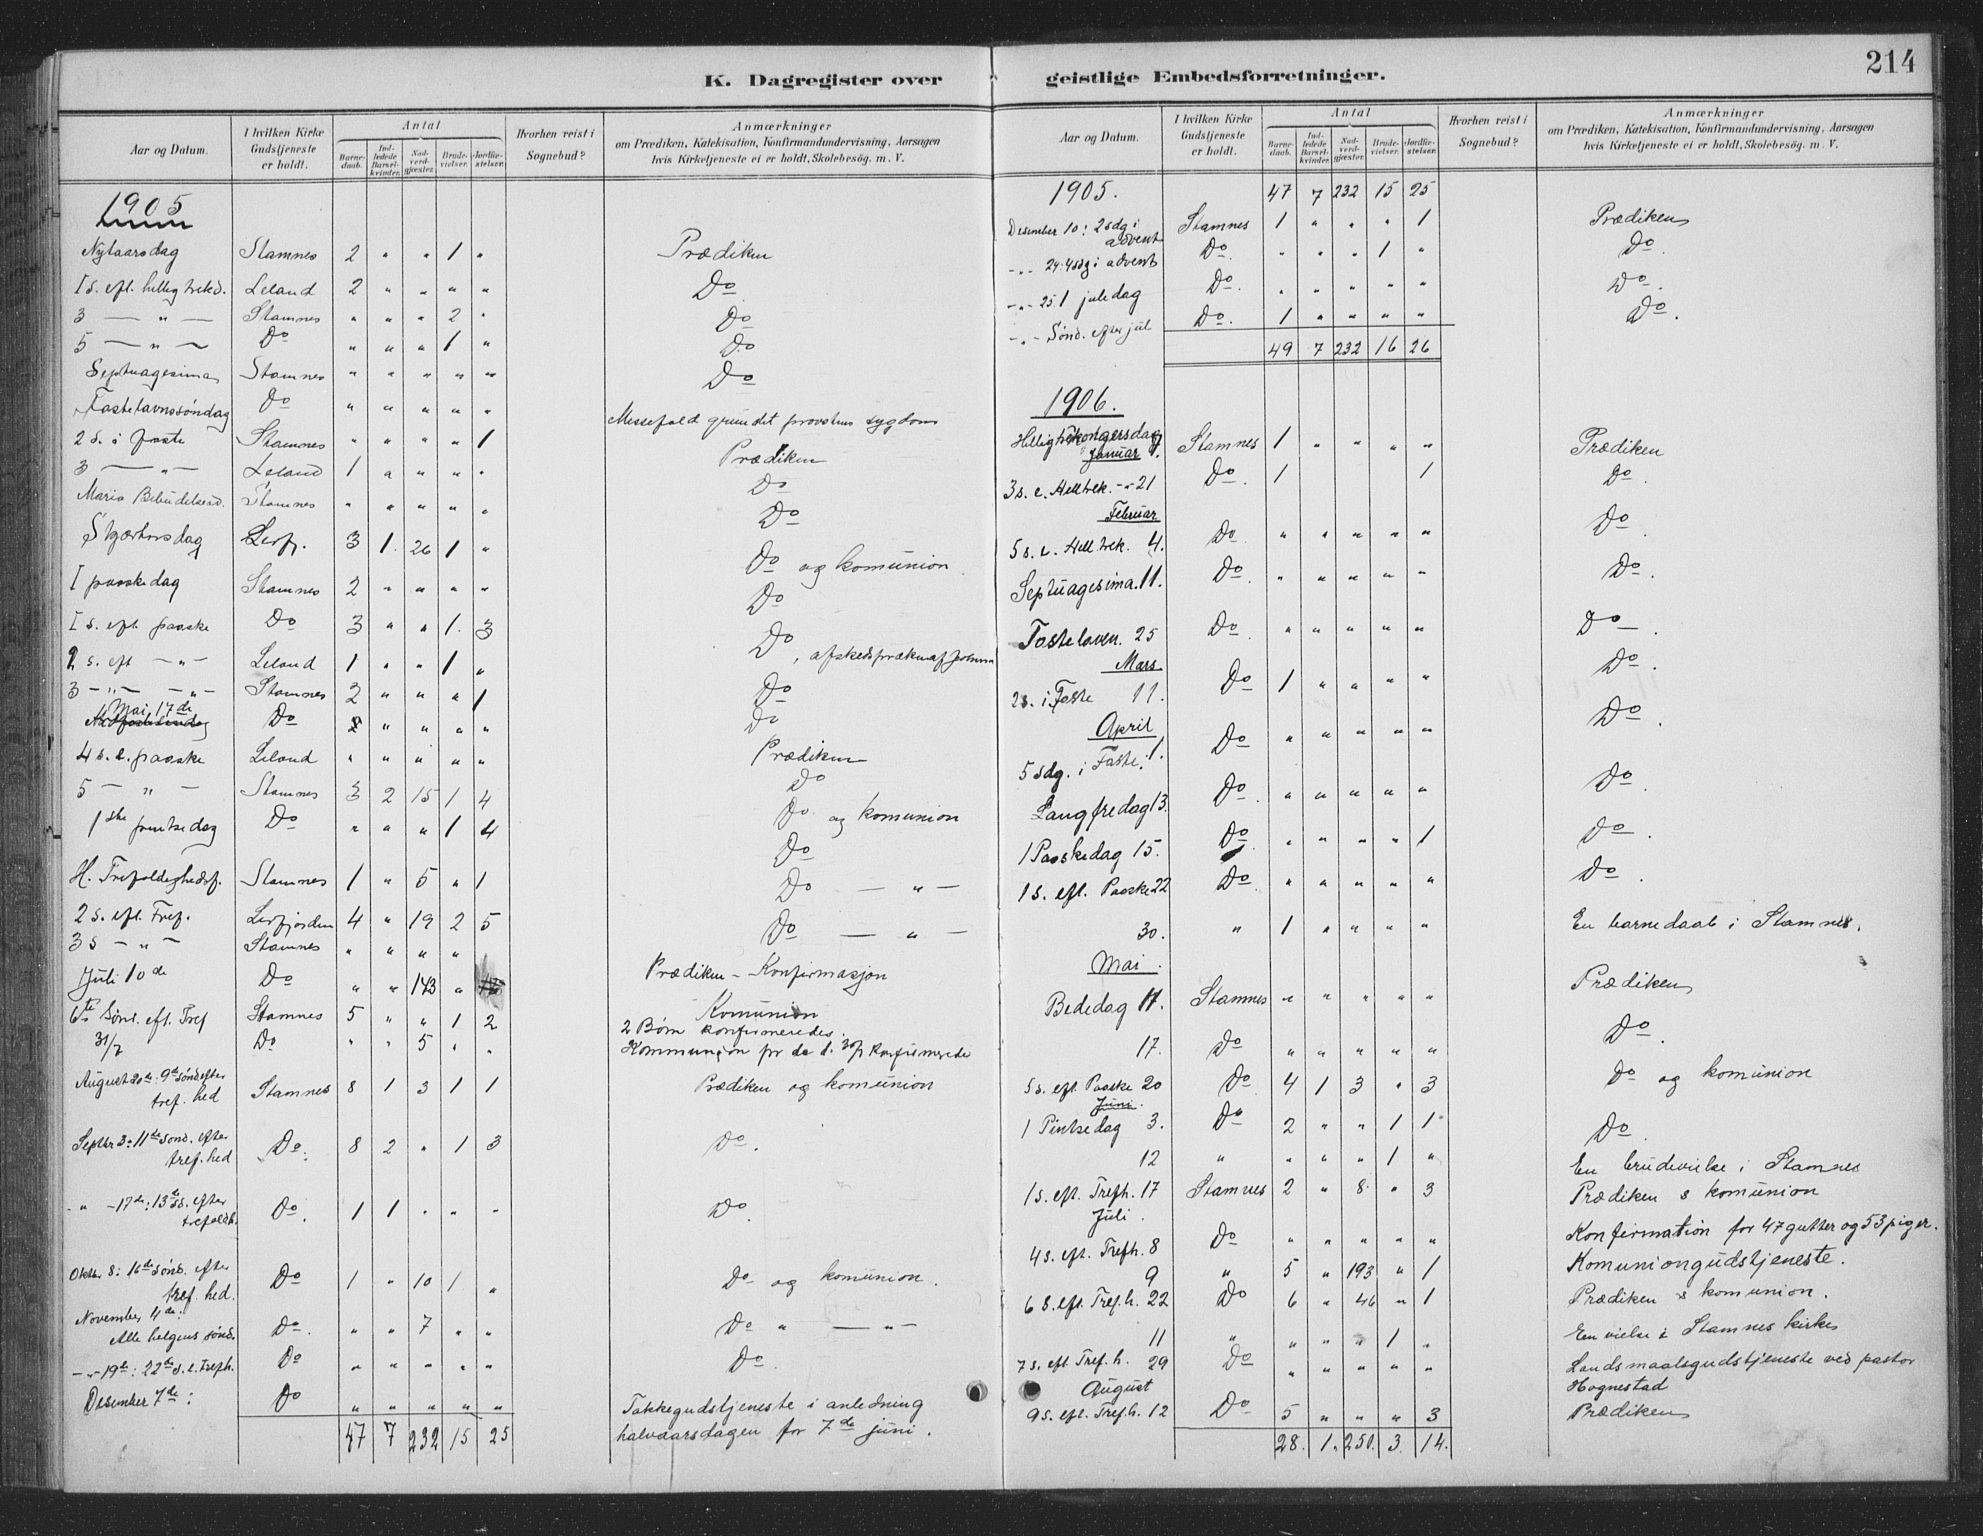 K. Dagregister over geistlige Embedsforretninger.
214
Aar og Datum.
I hvilken Kirke Gudstjeneste er holdt.
Antal
Barnedaab.
Indledede Barselkvinder.
Nadverdgjester.
Brudevielser.
Jordfæstelser.
Hvorhen reist i Sognebud?
Anmærkninger
om Prædiken, Katekisation, Konfirmandundervisning, Aarsagen
hvis Kirketjeneste ei er holdt, Skolebesög. m. V.
1905
Nytaarsdag Stamnes 2 " " 1 " Prædiken
I s. eft. hellig trekd. Leland 2 " " " " Do
3 — " — Stamnes " " " 2 " Do
5 — " — Do " " " 1 " Do
Septuagesima Stamnes " " " " " Do
Fastelavnssöndag Do " " " " " Messefald grundet provstens sygdom
2 s. i faste Stamnes " " " " 1 Prædiken
3 — " — Leland 1 " " " " Do
Maria Bebudelsesd. Stamnes " " " " " Do
Skjærtorsdag Lerfj. 3 1. 26 1 " Do og komunion
I paaskedag Stamnes 2 " " " " Do
I s. eft. paaske Do 3 " " 1. 3 Do, afskedspræken af
2 s. eft — " — Leland 1 " " 1 "
3 — " — — " — Stamnes 2 " " " 1 Do
Mai 17de Do " " " " Do
4 s. e. paaske Leland " " " " " Prædiken
5 — " — Stamnes 3 2 15 1 4 Do
Do og komunion
1ste pintsedag Do " " " 1 4 Do
H. Trefoldighedsf. Stamnes 1 " 5 " 1 Do — " —
2 s. eft. Tref. Lerfjorden 4 " 19 2 5 Do — " —
3 s — " — Stamnes " " " "
Juli 10de Do " " 143 " Prædiken – Konfirmasjon
Komunion
6te Sönd. eft. Tref Stamnes 5 " " 1 2 2 Börn konfirmeredes.
31/7 Do " " 5 " " Kommunion for de d. 30/7 konfirmerede
August 20de: 9de sönd efter
tref. hed Stamnes 8 1 3 1 1 Prædiken og komunion
Septbr 3: 11de sönd. efter
tref. hed Do. 8 2 " 1 3 Do.
" - 17de: 13de s. efter
trefoldh. Do. 1 1 " " " Do.
Oktbr 8: 16de sönd. efter
tref. hed. Do 1 " 10 1 " Do og komunion.
November
Alle helgens sönd. Do. " " 7 " " Do " — " —
- " - 19de: 22de s. e. trefh. Do " " " " " Do.
Desember 7de: Do " " " " " Takkegudstjeneste i anledning
halvaarsdagen for 7de juni.
47 7 232 15 25
Aar og Datum.
I hvilken Kirke Gudstjeneste er holdt.
Antal
Barnedaab.
Indledede Barselkvinder.
Nadverdgjester.
Brudevielser.
Jordfæstelser.
Hvorhen reist i Sognebud?
Anmærkninger
om Prædiken, Katekisation, Konfirmandundervisning, Aarsagen
hvis Kirketjeneste ei er holdt, Skolebesög. m. V.
1905. 47 7 232 15 25
Desember 10: 2 sdg i
advent Stamnes 1 " " " 1 Prædiken
- " - 24: 4 sdg i advent Do. " " " 1 " Do.
- " - 25 1 juledag Do. " " " " " Do.
- " - Sönd. efter jul Do. 1 " " " " Do.
49 7 232 16 26
1906.
Helligtrekongersdag
Januar Stamnes 1 " " " " Prædiken
3 s. e. Helltrek. - " - 21 Do. 1 1 Do.
Februar
5 s. e. Helltrek. 4. Do. " " " " " Do.
Septuagesima. 11. Do. " " " " " Do.
Fastelaven. 25 Do. " " " " " Do.
Mars
2 s. i Faste 11. Do 1 " " " " Do.
April
5 sdg. i Faste. 1. Do " " " " " Do.
Langfredag 13. Do. " " " " " Do.
1 Paaskedag 15. Do. " " " " 1 Do.
1 s. eft. Paaske 22 Do. " " " " " Do.
30. " 1 " " " " En barnedaab i Stamnes.
Mai.
Bededag 11. Stamnes " " " " " Prædiken
17. Do " " " " " Do.
5 s. eft. Paaske 20 Do 4 1 3 " 3 Do og komunion
Juni.
1 Pintsedag 3. Do 2 " " 1 1 Do.
12 " " " " 1 " En brudevielse i Stamnes
1 s. eft. Trefh. 17 Stamnes 2 " 8. " 3 Prædiken & komunion
Juli.
4 s. eft. Trefh. 8 Do " " " " " Konfirmation for 47 gutter og 53 piger.
9 " 5 " 193 " 1 Komuniongudstjeneste.
6 s. eft. Tref. h. 22 Do 6 " 46 " 1 Prædiken & komunion.
11 " " " " 1 " En vielse i Stamnes kirke
7 s. eft Tref. h. 29 Do " " " " " Landsmaalsgudstjeneste ved pastor
Hognestad
August
9 s. eft. Tref. h. 12 Do 5 " " " 3 Prædiken
28. 1. 250. 3. 14.